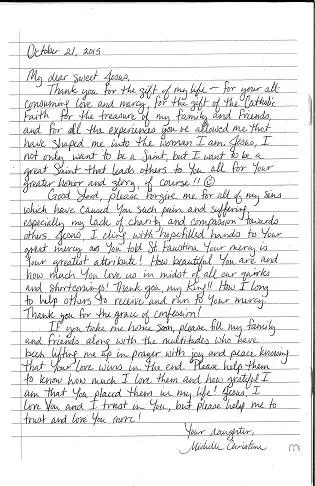 October 21, 2015
My dear sweet Jesus,
Thank you for the gift of my life – for your all
consuming love and mercy, for the gift of the Catholic
Faith for the treasure of my family and friends,
and for all the experiences you've allowed me that
have shaped me into the woman I am. Jesus, I
not only want to be a Saint, but I want to be a
great Saint that leads others to You all for Your
greater honor and glory, of course!! ☺
Good Lord, please forgive me for all of my sins
which have caused You such pain and suffering
especially my lack of charity and compassion towards
others. Jesus, I cling with hopefilled hands to Your
great mercy as You told St. Faustina Your mercy is
Your greatest attribute! How beautiful You are and
how much You love us in midst of all our quirks
and shortcomings! Thank you, my King!! How I long
to help others to receive and run to Your mercy.
Thank you for the grace of confession!
If you take me home soon, please fill my family
and friends along with the multitudes who have
been lifting me up in prayer with joy and peace knowing
that Your love wins in the end. Please help them
to know how much I love them and how grateful I
am that You placed them in my life! Jesus, I
love You and I trust in You, but please help me to
trust and love You more!
Your daughter,
Michelle Christine